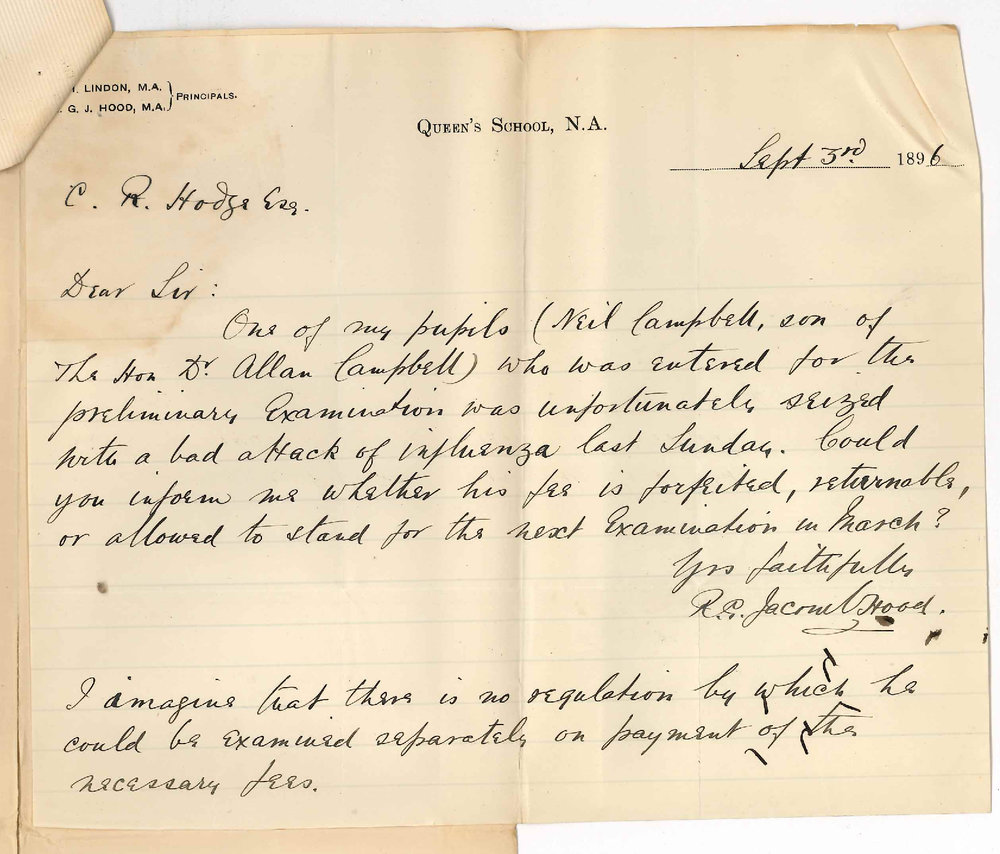 LINDON, M.A.
G. J. HOOD, M.A. } PRINCIPALS.
QUEEN'S SCHOOL, N.A.
Sept 3rd 1896
C. R. Hodge Esq.
Dear Sir:
One of my pupils (Neil Campbell, son of
The Hon Dr. Allan Campbell) who was entered for the
preliminary Examination was unfortunately seized
with a bad attack of influenza last Sunday. Could
you inform me whether his fee is forfeited, returnable,
or allowed to stand for the next Examination in March?
Yrs faithfully
R.G. Jacomb Hood.
I imagine that there is no regulation by which he
could be examined separately on payment of the
necessary fees.